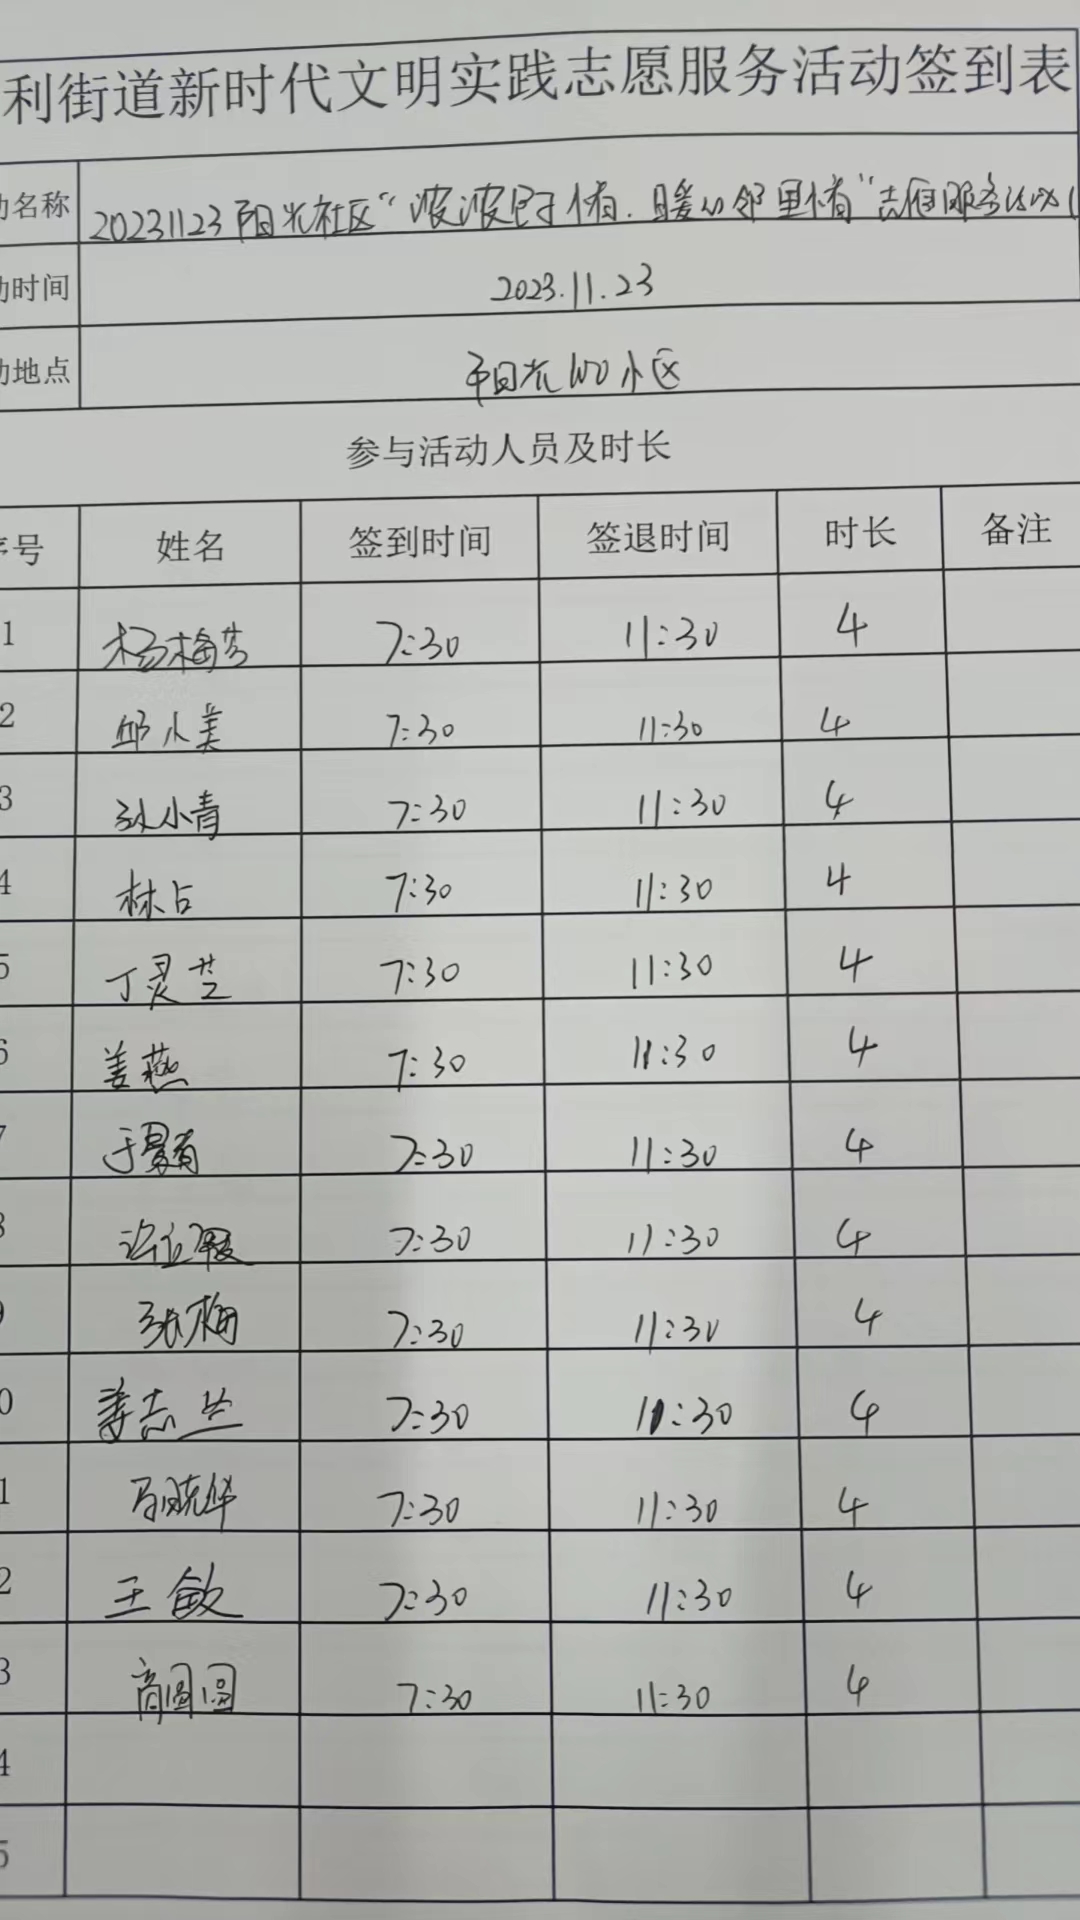 利街道新时代文明实践志愿服务活动签到表
动名称 20231123阳光社区“浓浓包子情，暖心邻里情”志愿服务活动
动时间 2023.11.23
动地点 阳光100小区
参与活动人员及时长
序号 姓名 签到时间 签退时间 时长 备注
1 杨梅芳 7:30 11:30 4
2 邱小美 7:30 11:30 4
3 孙小青 7:30 11:30 4
4 林占 7:30 11:30 4
5 丁灵芝 7:30 11:30 4
6 姜燕 7:30 11:30 4
7 于 7:30 11:30 4
8 7:30 11:30 4
9 张梅 7:30 11:30 4
0 姜志丛 7:30 11:30 4
1 马晓华 7:30 11:30 4
2 王敏 7:30 11:30 4
3 商圆圆 7:30 11:30 4
4
5